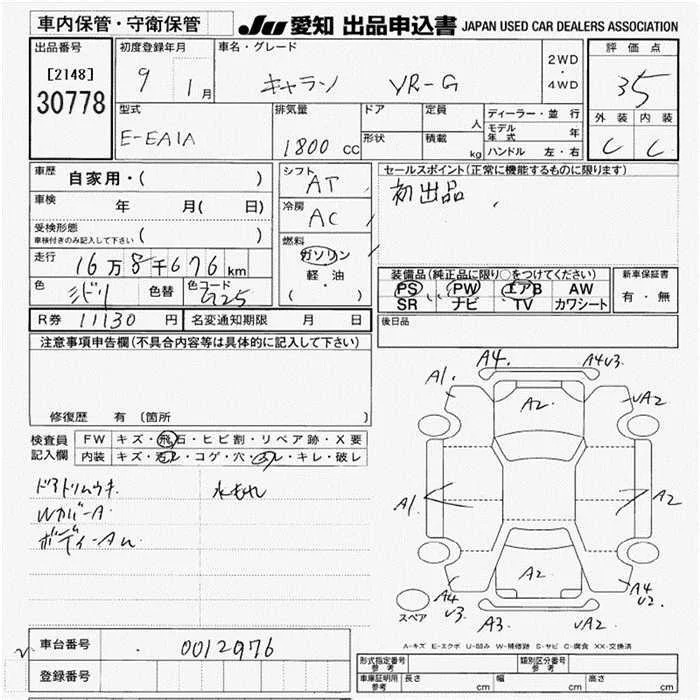 車内保管・守衛保管
JU 愛知 出品申込書 JAPAN USED CAR DEALERS ASSOCIATION
出品番号
[2148]
30778
初度登録年月
9 1月
車名・グレード
キャラン VR-G
2WD
・
4WD
評価点
35
外装 内装
C C
型式
E-EA1A
排気量
1800 cc
ドア
形状
定員 人
積載 kg
ディーラー・並行
モデル年式 年
ハンドル 左・右
車歴 自家用・( )
車検 年 月( 日)
受検形態
車検付きのみ記入して下さい ( )
走行 16万8千676km
色 ミドリ 色替 色コード G25
シフト AT
冷房 AC
燃料
ガソリン
軽・油
( ・ )
セールスポイント(正常に機能するものに限ります)
初出品
装備品(純正品に限り○をつけてください)
PS PW エアB AW
SR ナビ TV カワシート
新車保証書
有・無
R券 11130 円 名変通知期限 月 日
後日品
注意事項申告欄(不具合内容等は具体的に記入して下さい)
修復歴 有(箇所 )
検査員記入欄
FW キズ・飛石・ヒビ割・リペア跡・X要
内装 キズ・汚レ・コゲ・穴・スレ・キレ・破レ
ドアトリムウキ 水もれ
WカバーA
A4. A4U3.
A1. UA2
A2.
A1. A2
A2
A4 A4
U3 U2
スペア A3 UA2
A-キズ E-エクボ U-凹み W-補修跡 S-サビ C-腐食 XX-交換済
車台番号 0012976
登録番号
形式指定番号 参考
類別区分番号 参考
車庫証明用 参考 長さ cm 幅 cm 高さ cm